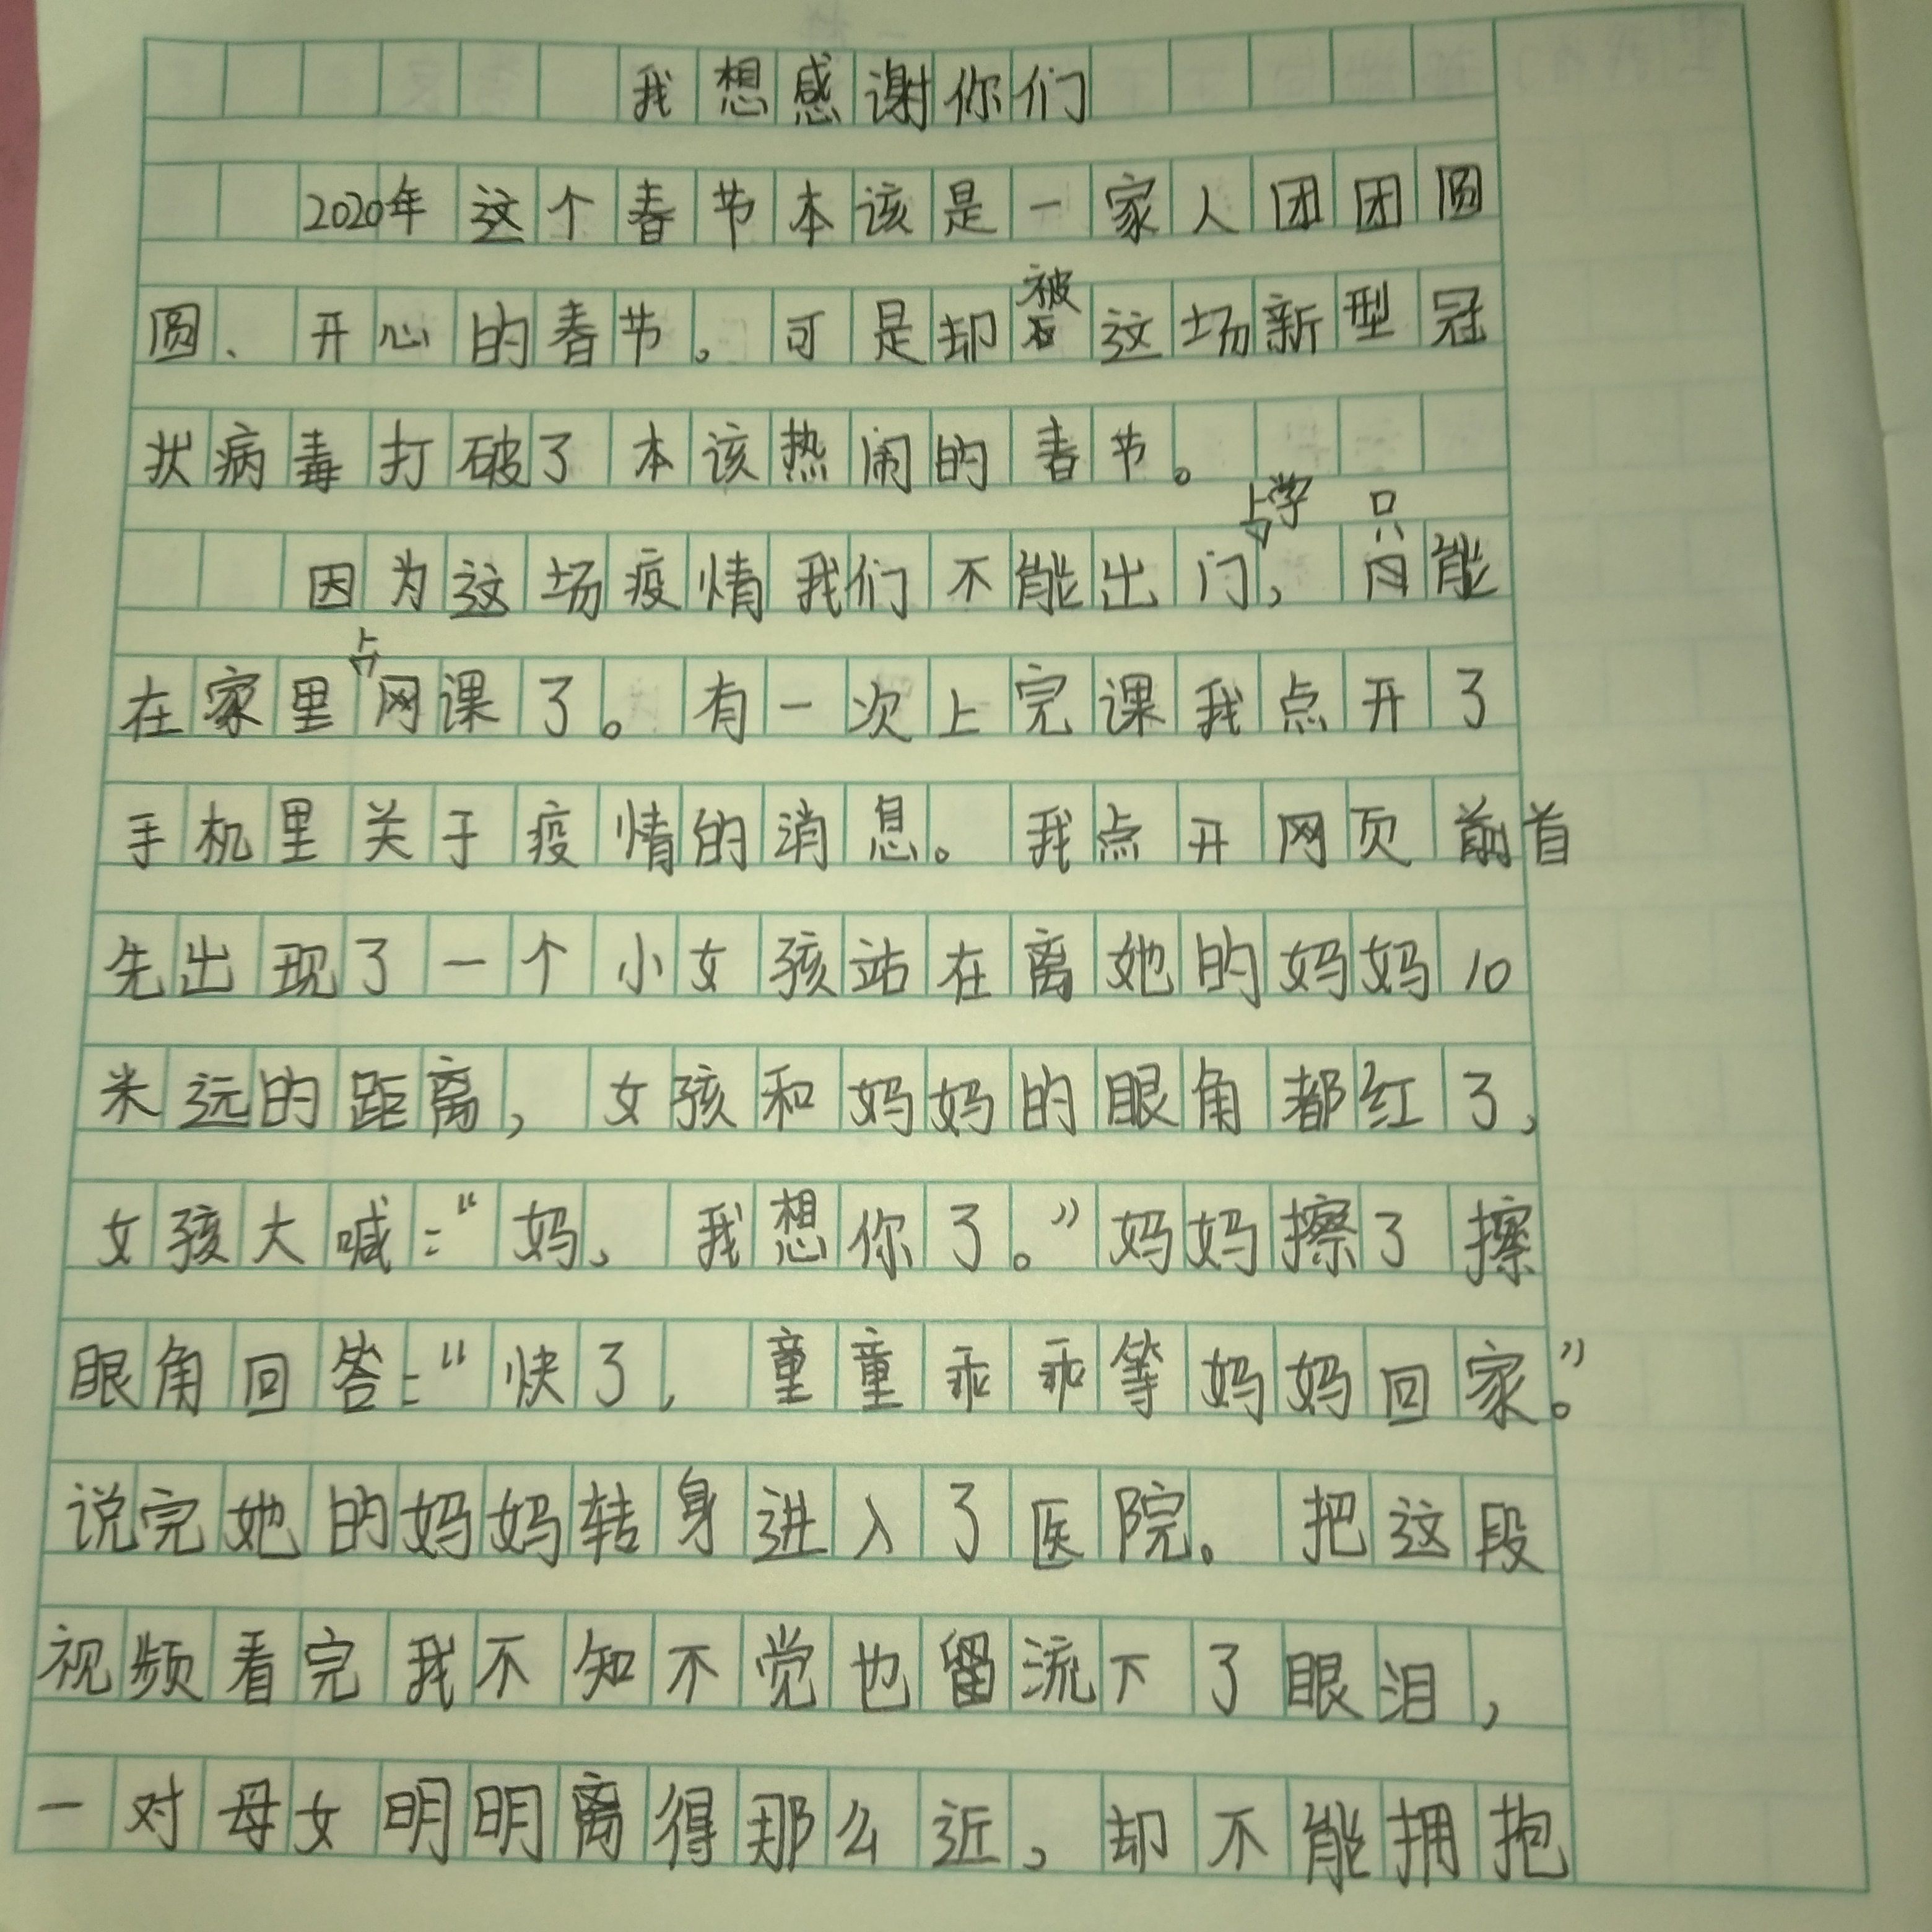 我想感谢你们
2020年这个春节本该是一家人团团圆
圆、开心的春节。可是却被这场新型冠
状病毒打破了本该热闹的春节。
因为这场疫情我们不能出门上学,只能
在家里上网课了。有一次上完课我点开了
手机里关于疫情的消息。我点开网页首
先出现了一个小女孩站在离她的妈妈10
米远的距离,女孩和妈妈的眼角都红了,
女孩大喊:“妈、我想你了。”妈妈擦了擦
眼角回答:“快了,童童乖乖等妈妈回家。”
说完她的妈妈转身进入了医院。把这段
视频看完我不知不觉也流下了眼泪,
一对母女明明离得那么近,却不能拥抱